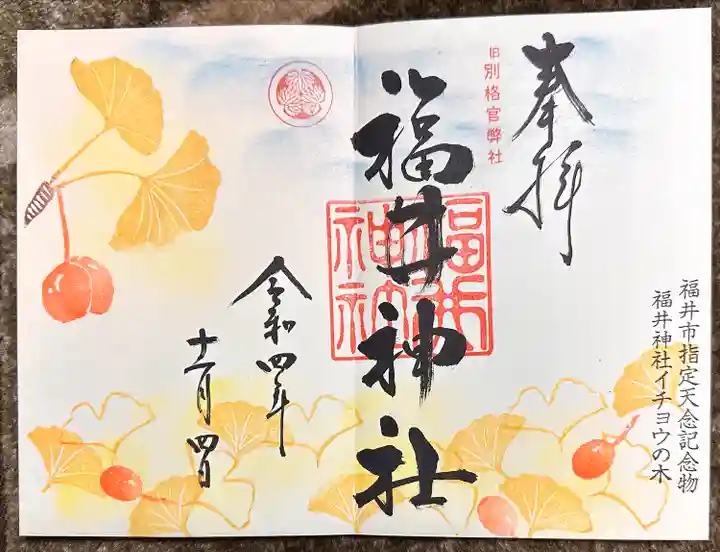 奉拝
旧別格官弊社
福井神社
福井神社
令和四年
十一月四日
福井市指定天念記念物
福井神社イチョウの木